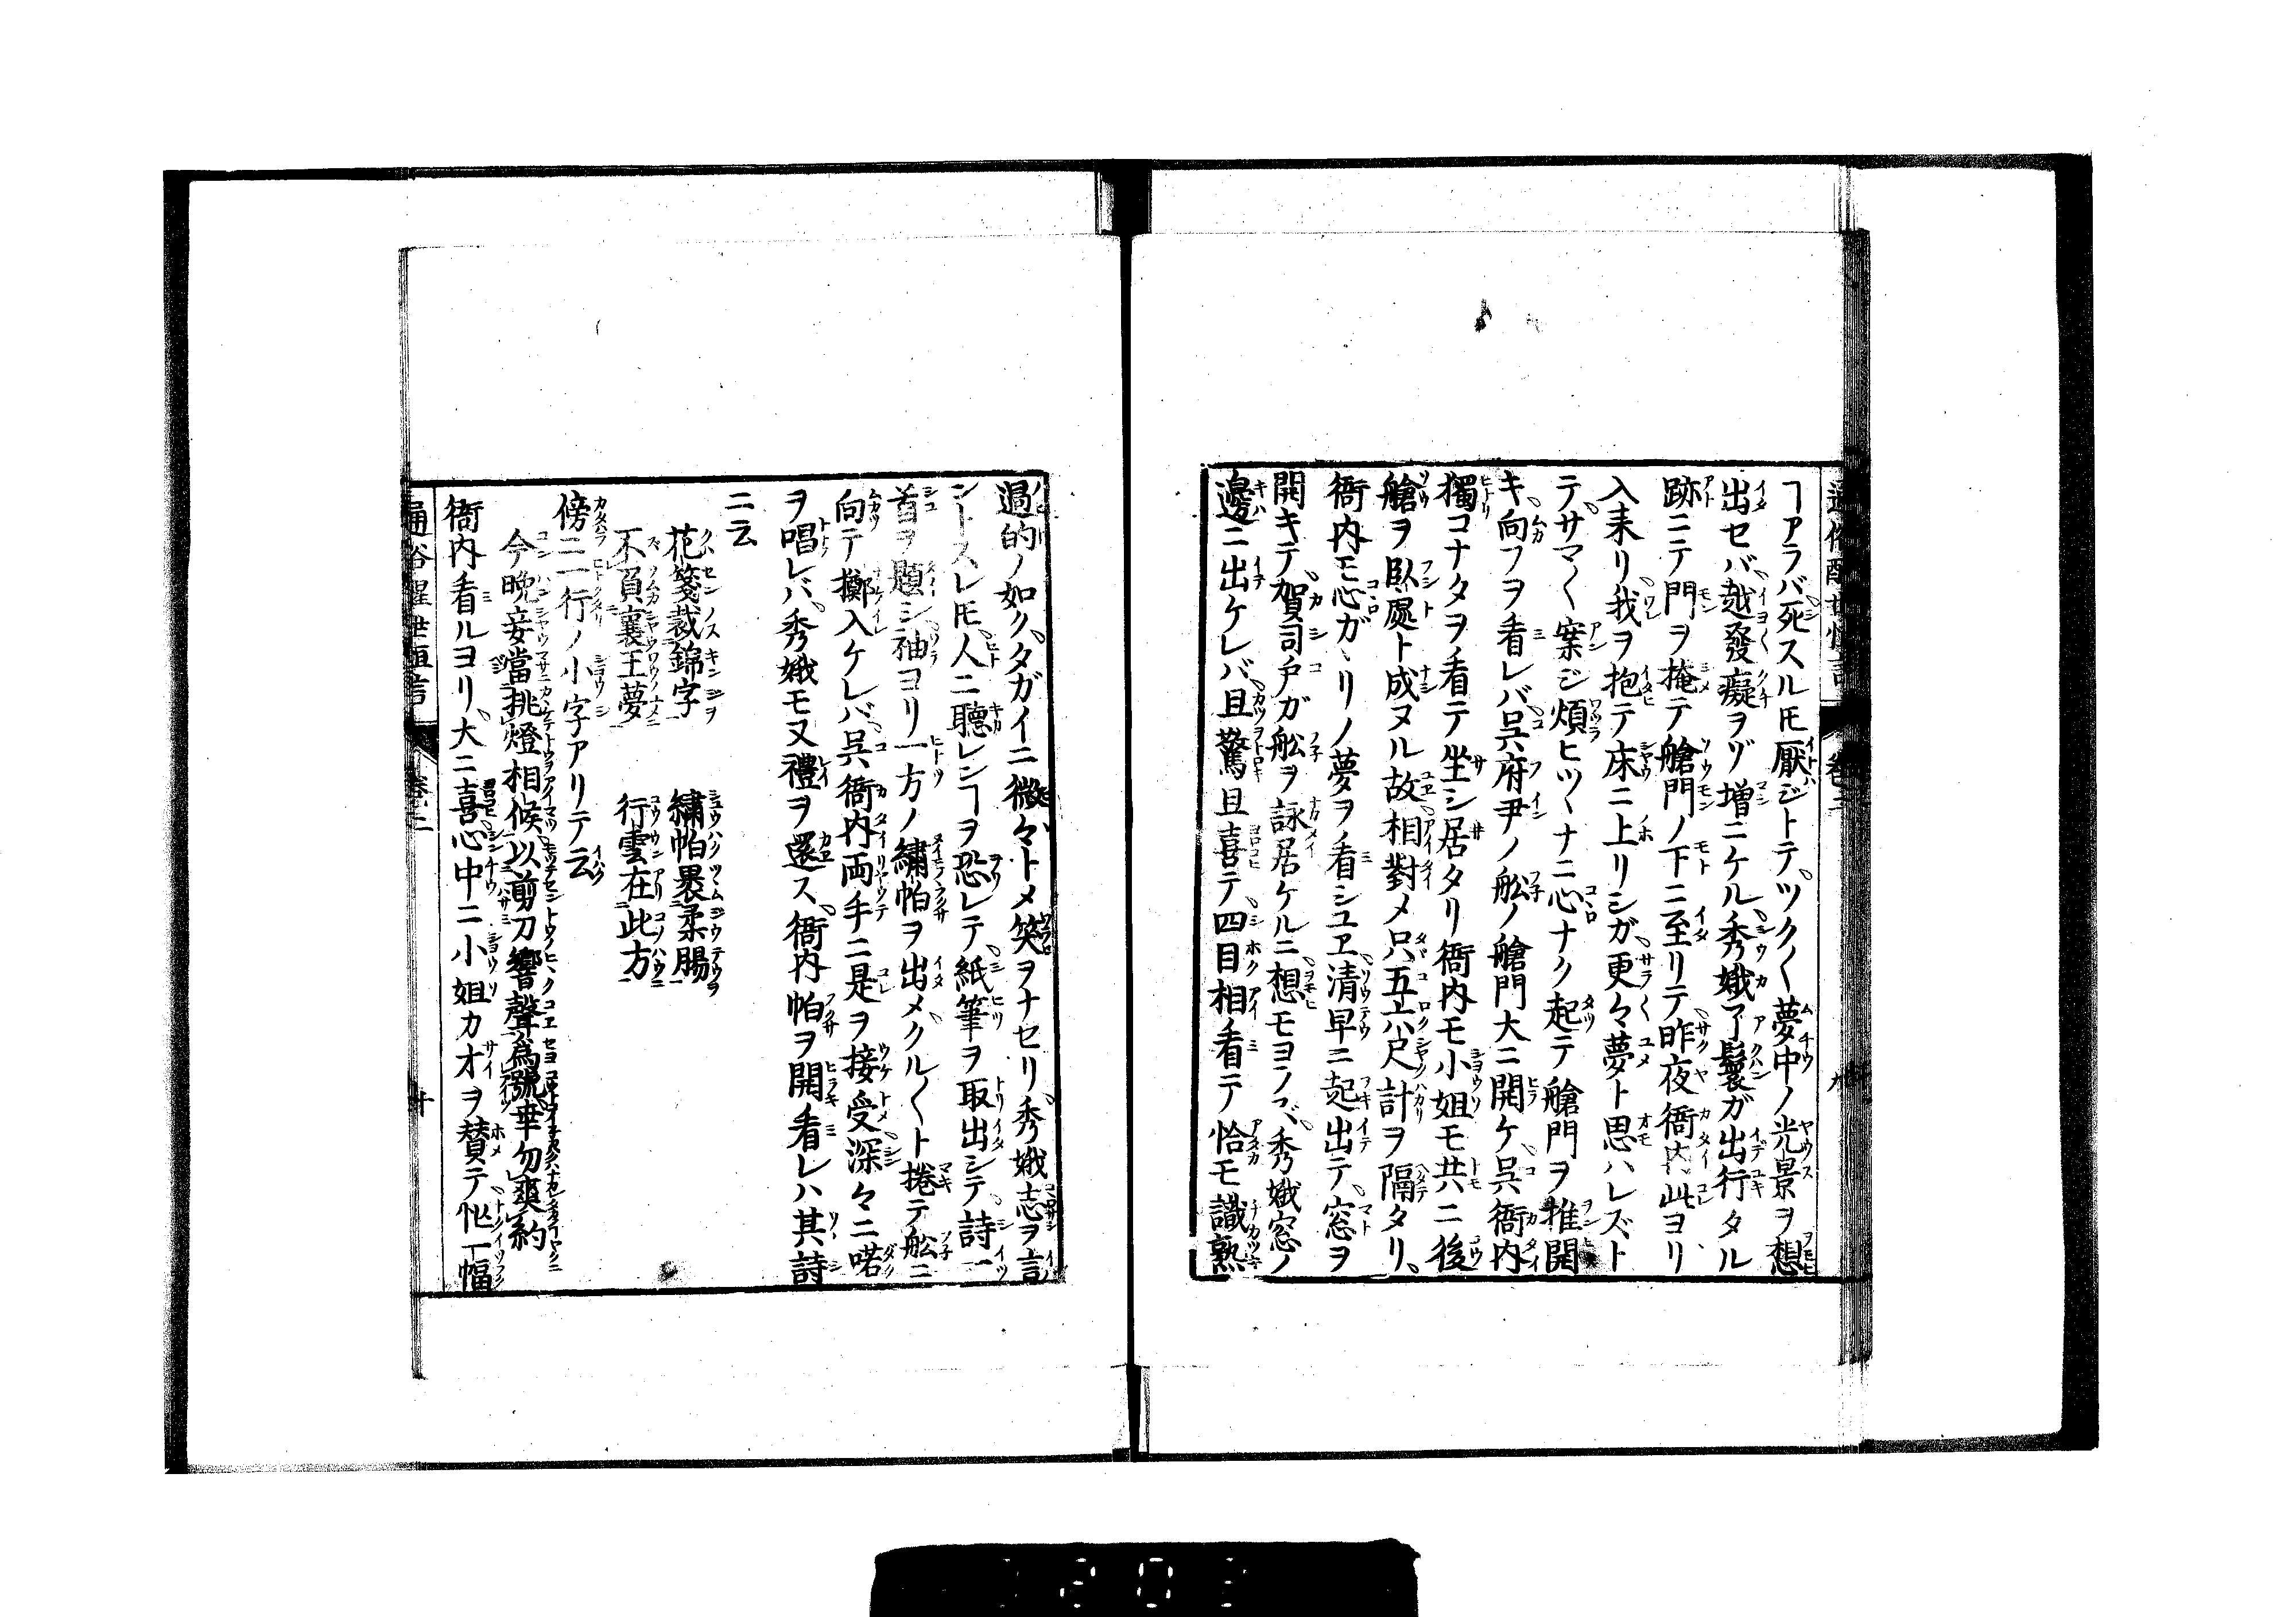 ヿアラバ死スル𪜈厭ジトテツク〱夢中ノ光景ヲ想
出セバ越發癡ヲゾ増ニケル秀娥了鬟ガ出行タル
跡ニテ門ヲ掩テ艙門ノ下ニ至リテ昨夜衙内此ヨリ
入来リ我ヲ抱テ床ニ上リシガ更々夢ト思ハレズト
テサマ〱案ジ煩ヒツヽナニ心ナク起テ艙門ヲ推開
キ向フヲ看レバ呉府尹ノ舩ノ艙門大ニ開ケ呉衙内
獨コナタヲ看テ坐シ居タリ衙内モ小姐モ共ニ後
艙ヲ臥處ト成ヌル故相對メ只五六尺計ヲ隔タリ
衙内モ心ガヽリノ夢ヲ看シユヱ清早ニ起出テ窓ヲ
開キテ賀司戸ガ舩ヲ詠居ケルニ想モヨラズ秀娥窓ノ
邊ニ出ケレバ且驚且喜テ四目相看テ恰モ識熟
通俗醒世恒言 巻之二 九
過的ノ如クタガイニ微々トメ笑ヲナセリ秀娥志ヲ言
ントスレ𪜈人ニ聽レンヿヲ恐レテ紙筆ヲ取出シテ詩一
首ヲ題シ袖ヨリ一方ノ繍帕ヲ出メクル〱ト捲テ舩ニ
向テ擲入ケレバ呉衙内両手ニ是ヲ接受深々ニ喏
ヲ唱レバ秀娥モ又禮ヲ還ス衙内帕ヲ開看レハ其詩
ニ云
花箋裁錦字 繍帕褁柔腸
不負襄王夢 行雲在此方
傍ニ一行ノ小字アリテ云
今晩妾當挑燈相候以剪刀響聲爲號幸勿爽約
衙内看ルヨリ大ニ喜心中ニ小姐カオヲ賛テ他一幅
通俗醒世恒言 巻之二 十